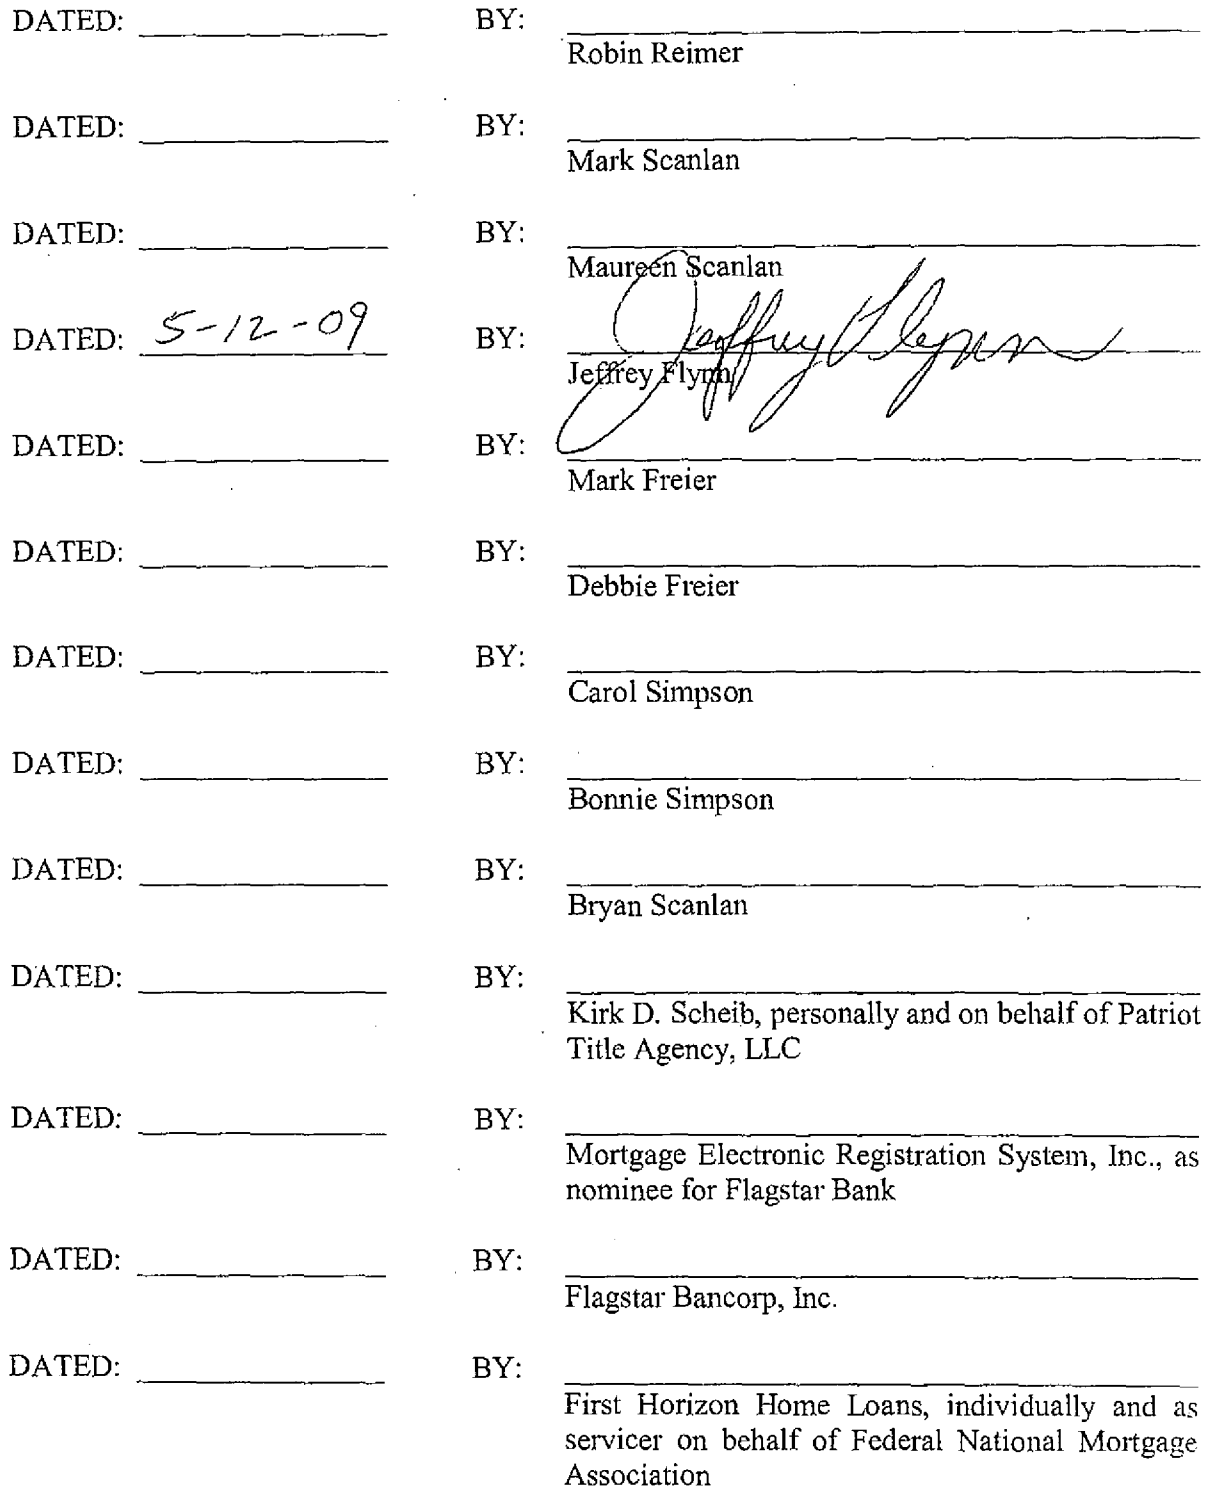 DATED: BY:
Robin Reimer
DATED: BY:
Mark Scanlan
DATED: BY:
Maureen Scanlan
DATED: 5-12-09 BY: Jeffrey Flynn
Jeffrey Flynn
DATED: BY:
Mark Freier
DATED: BY:
Debbie Freier
DATED: BY:
Carol Simpson
DATED: BY:
Bonnie Simpson
DATED: BY:
Bryan Scanlan
DATED: BY:
Kirk D. Scheib, personally and on behalf of Patriot
Title Agency, LLC
DATED: BY:
Mortgage Electronic Registration System, Inc., as
nominee for Flagstar Bank
DATED: BY:
Flagstar Bancorp, Inc.
DATED: BY:
First Horizon Home Loans, individually and as
servicer on behalf of Federal National Mortgage
Association